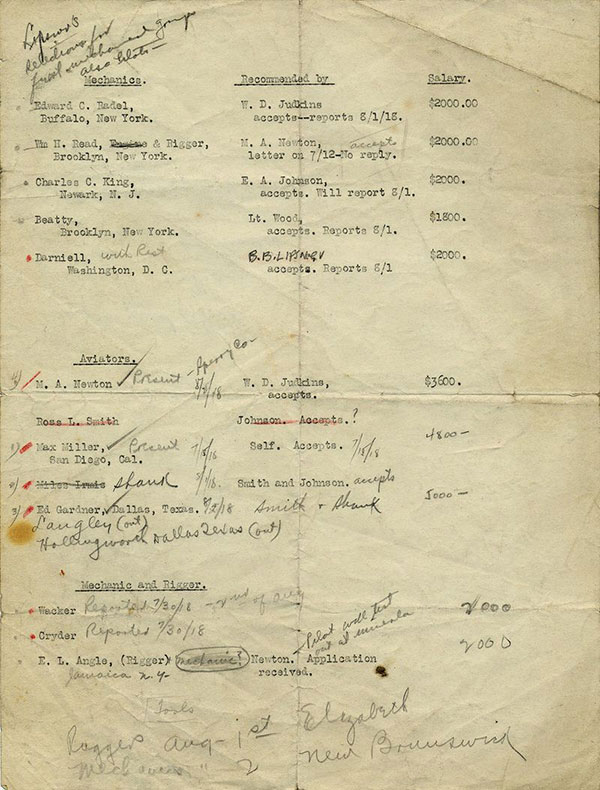 Lipsner's
selections for
ground
also Pilots—
Mechanics. Recommended by Salary.
Edward C. Radel, W. D. Judkins $2000.00
Buffalo, New York. accepts--reports 8/1/18.
Wm H. Read, & Rigger, M. A. Newton, accepts $2000.00
Brooklyn, New York. letter on 7/12-No reply.
Charles C. King, E. A. Johnson, $2000.
Newark, N. J. accepts. Will report 8/1.
Beatty, Lt. Wood, $1800.
Brooklyn, New York. accepts. Reports 8/1.
Darniell, with Rest B.B. LIPSNER $2000.
Washington, D. C. accepts. Reports 8/1
Aviators.
4) M. A. Newton Present - Sperry Co- W. D. Judkins, $3600.
accepts.
Ross L. Smith Johnson. Accepts.?
1) Max Miller, Present Self. Accepts. 7/18/18 4800—
San Diego, Cal.
2) Miles Irmis Shank Smith and Johnson. accepts
3) Ed Gardner, Dallas, Texas. Smith + Shank 5000—
Langley (out)
Hollingworth Dallas Texas (out)
Mechanic and Rigger.
Wacker Reported 7/30/18 — 2nd of Aug 2000
Cryder Reported 7/30/18 2000
Pilot will test
out at mineola
E. L. Angle, (Rigger) mechanic? Newton. Application
Jamaica N.Y. received.
Tools
Riggers Aug - 1st Elizabeth
Mechanics " 2 New Brunswick